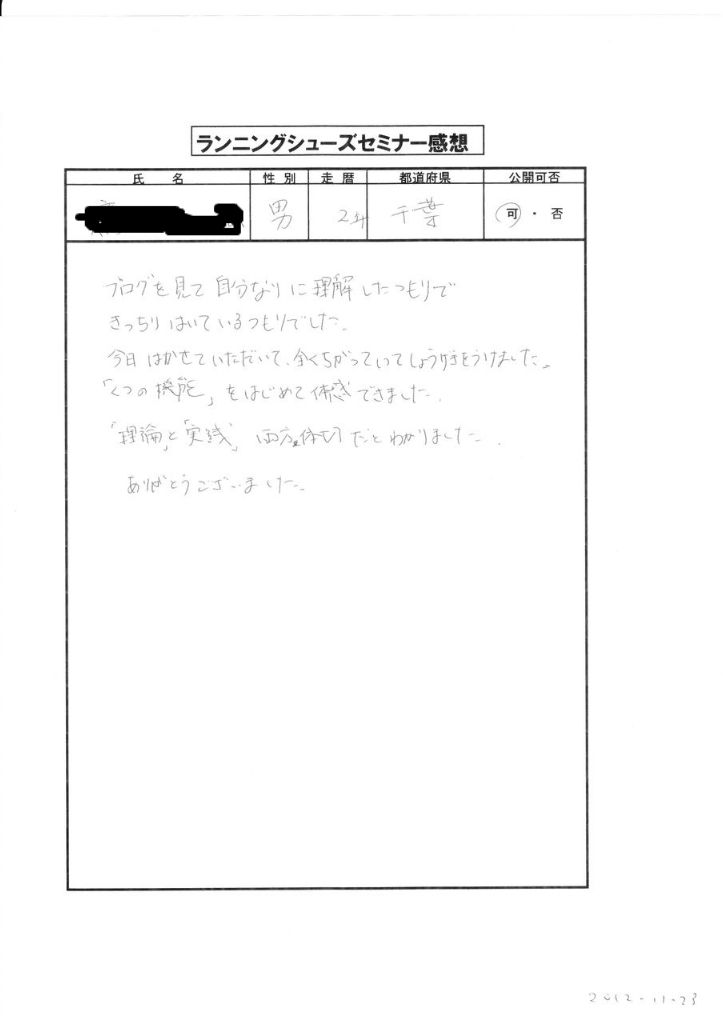 ランニングシューズセミナー感想
氏 名 性 別 走 暦 都道府県 公開可否
男 2年 千葉 可・否
ブログを見て自分なりに理解したつもりで
きっちりはいているつもりでした。
今日はかせていただいて、全くちがっていてしょうげきをうけました。
「くつの機能」をはじめて体感できました。
「理論」と「実践」両方大切だとわかりました。
ありがとうございました。
2012-11-23